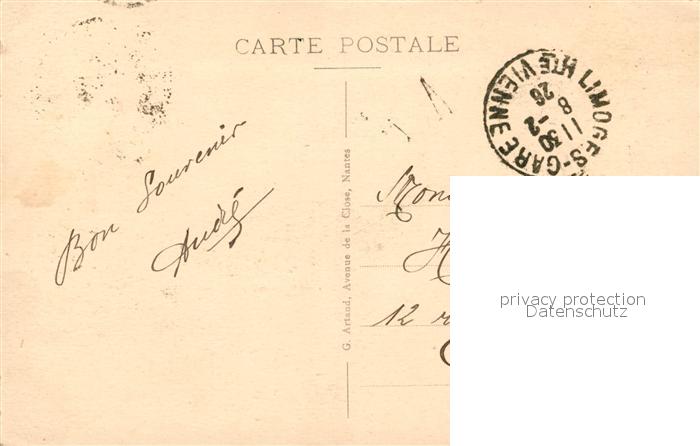 CARTE POSTALE
LIMOGES-GARE
HTE VIENNE
11 30
8 -2
26
Bon Souvenir
André
G. Artaud, Avenue de la Close, Nantes
12
privacy protection
Datenschutz